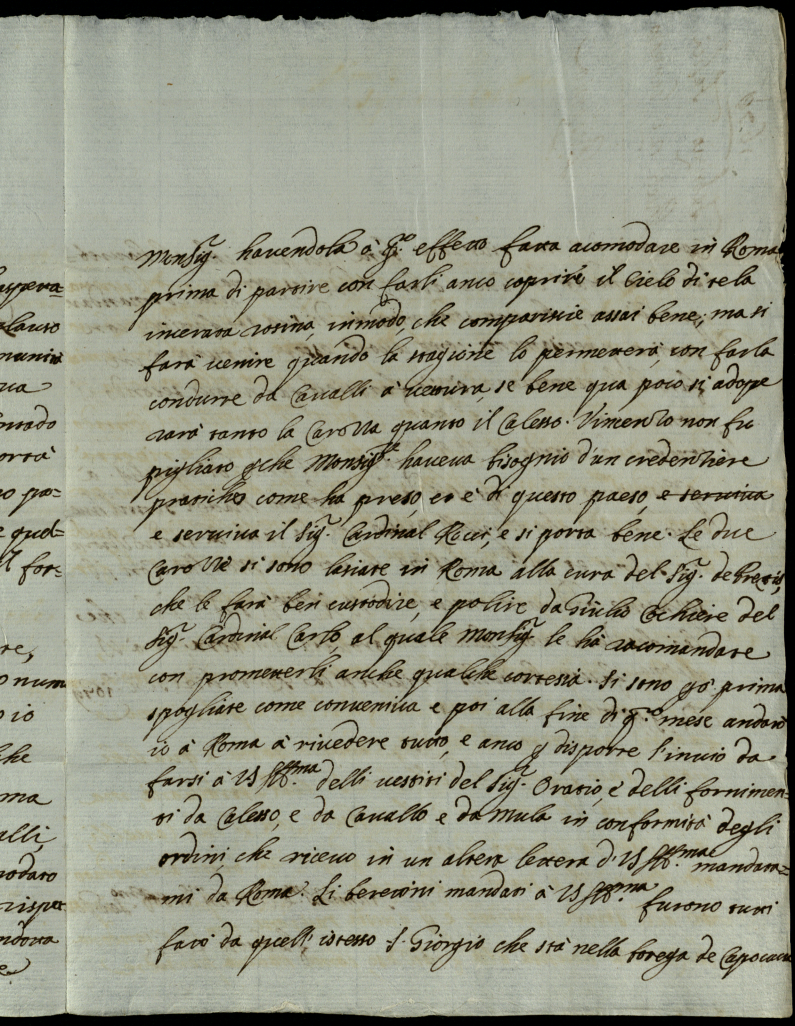 Monsig.r havendola à q.o effetto fatta acomodare in Roma
prima di partire con farli anco coprire il Cielo di tela
incerata rosina in modo, che compariscie assai bene; ma si
farà venire quando la stagione lo permetterà, con farla
condurre da Cavalli à vettura, se bene qua poco si adope
rarà tanto la Carozza quanto il Calesso. Vincenzo non fu
pigliato perche Monsig.re haveva bisognio d'un credenziere
pratiche come ha preso, et è di questo paeso, e serviva
e serviva il Sig.r Cardinal Rocci, e si porta bene. Le due
Carozze si sono lasiate in Roma alla cura del Sig.r de Pretis,
che le farà ben custodire, e polire da Giulio Cochiere del
Sig.r Cardinal Carlo, al quale Monsig.r le hà racomandate
con prometterli anche qualche cortesia. Si sono però prima
spogliate come conveniva e poi alla fine di q.o mese andarò
io à Roma à rivedere tutto, e anco per disporre l'invio da
farsi à VS Ill.ma delli vestiti del Sig.r Oratio, e delli fornimen=
ti da Calesso, e da Cavallo e da Mula in conformità degli
ordini, che ricevo in un altera lettera di VS Ill.ma mandata=
mi da Roma. Li berettini mandati à VS Ill.ma furono tutti
fatti da quelli istesso S. Giorgio che stà nella botega de
aspera=
nuta
va
ortà
o po=
e quel=
l for=
re,
o num
o io
che
ma
alli
rispet